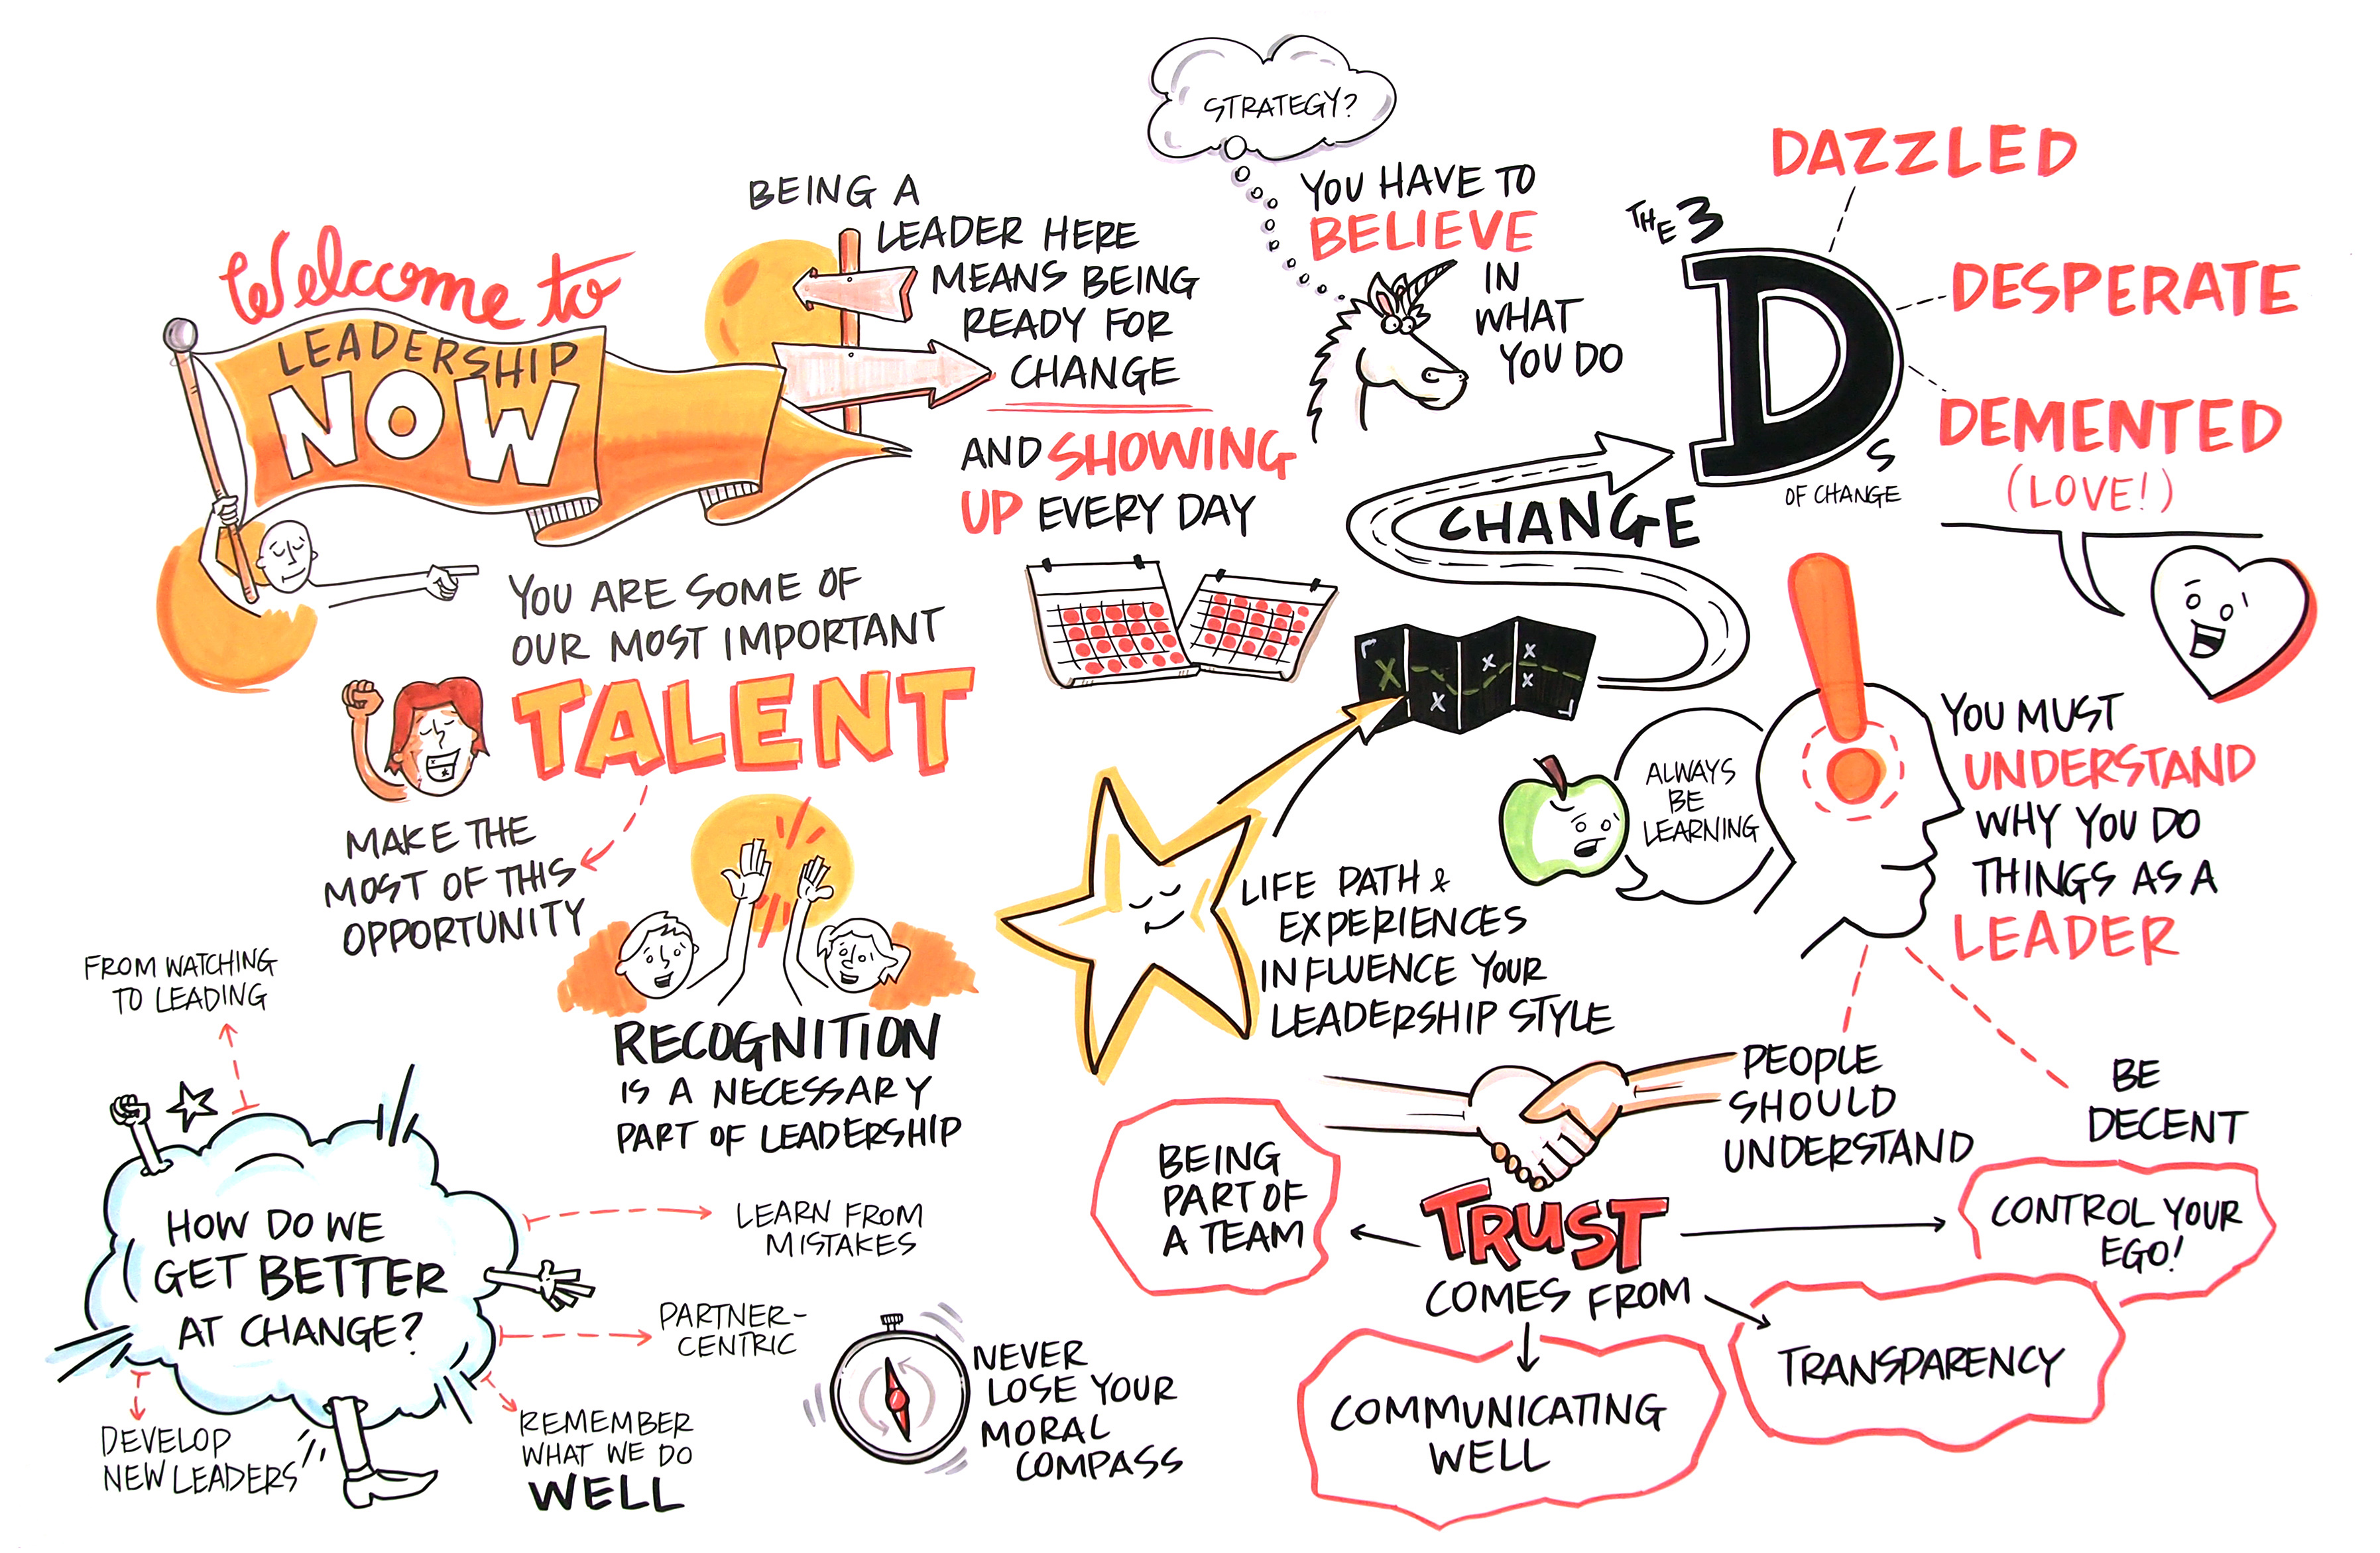 Welcome to
LEADERSHIP
NOW
BEING A
LEADER HERE
MEANS BEING
READY FOR
CHANGE
AND SHOWING
UP EVERY DAY
STRATEGY?
YOU HAVE TO
BELIEVE
IN
WHAT
YOU DO
THE 3
D
S
OF CHANGE
DAZZLED
DESPERATE
DEMENTED
(LOVE!)
CHANGE
YOU ARE SOME OF
OUR MOST IMPORTANT
TALENT
MAKE THE
MOST OF THIS
OPPORTUNITY
RECOGNITION
IS A NECESSARY
PART OF LEADERSHIP
LIFE PATH &
EXPERIENCES
INFLUENCE YOUR
LEADERSHIP STYLE
ALWAYS
BE
LEARNING
YOU MUST
UNDERSTAND
WHY YOU DO
THINGS AS A
LEADER
PEOPLE
SHOULD
UNDERSTAND
BE
DECENT
FROM WATCHING
TO LEADING
HOW DO WE
GET BETTER
AT CHANGE?
LEARN FROM
MISTAKES
PARTNER-
CENTRIC
REMEMBER
WHAT WE DO
WELL
DEVELOP
NEW LEADERS
NEVER
LOSE YOUR
MORAL
COMPASS
TRUST
COMES FROM
BEING
PART OF
A TEAM
COMMUNICATING
WELL
TRANSPARENCY
CONTROL YOUR
EGO!